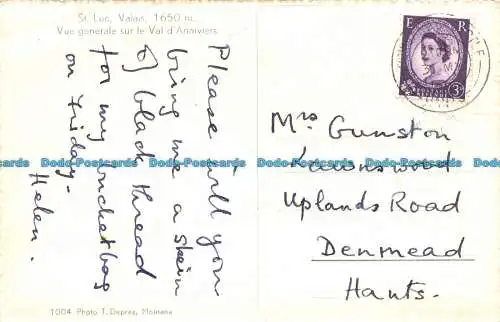 St. Luc, Valais, 1650 m.
Vue generale sur le Val d'Anniviers
E R
3D
Please will you
bring me a skein
of black thread
for my
on Friday.
Helen.
Mrs Gunston
Lawnswood
Uplands Road
Denmead
Hants.
Dodo-Postcards Dodo-Postcards Dodo-Postcards
1004 Photo T. Deprez, Moinena